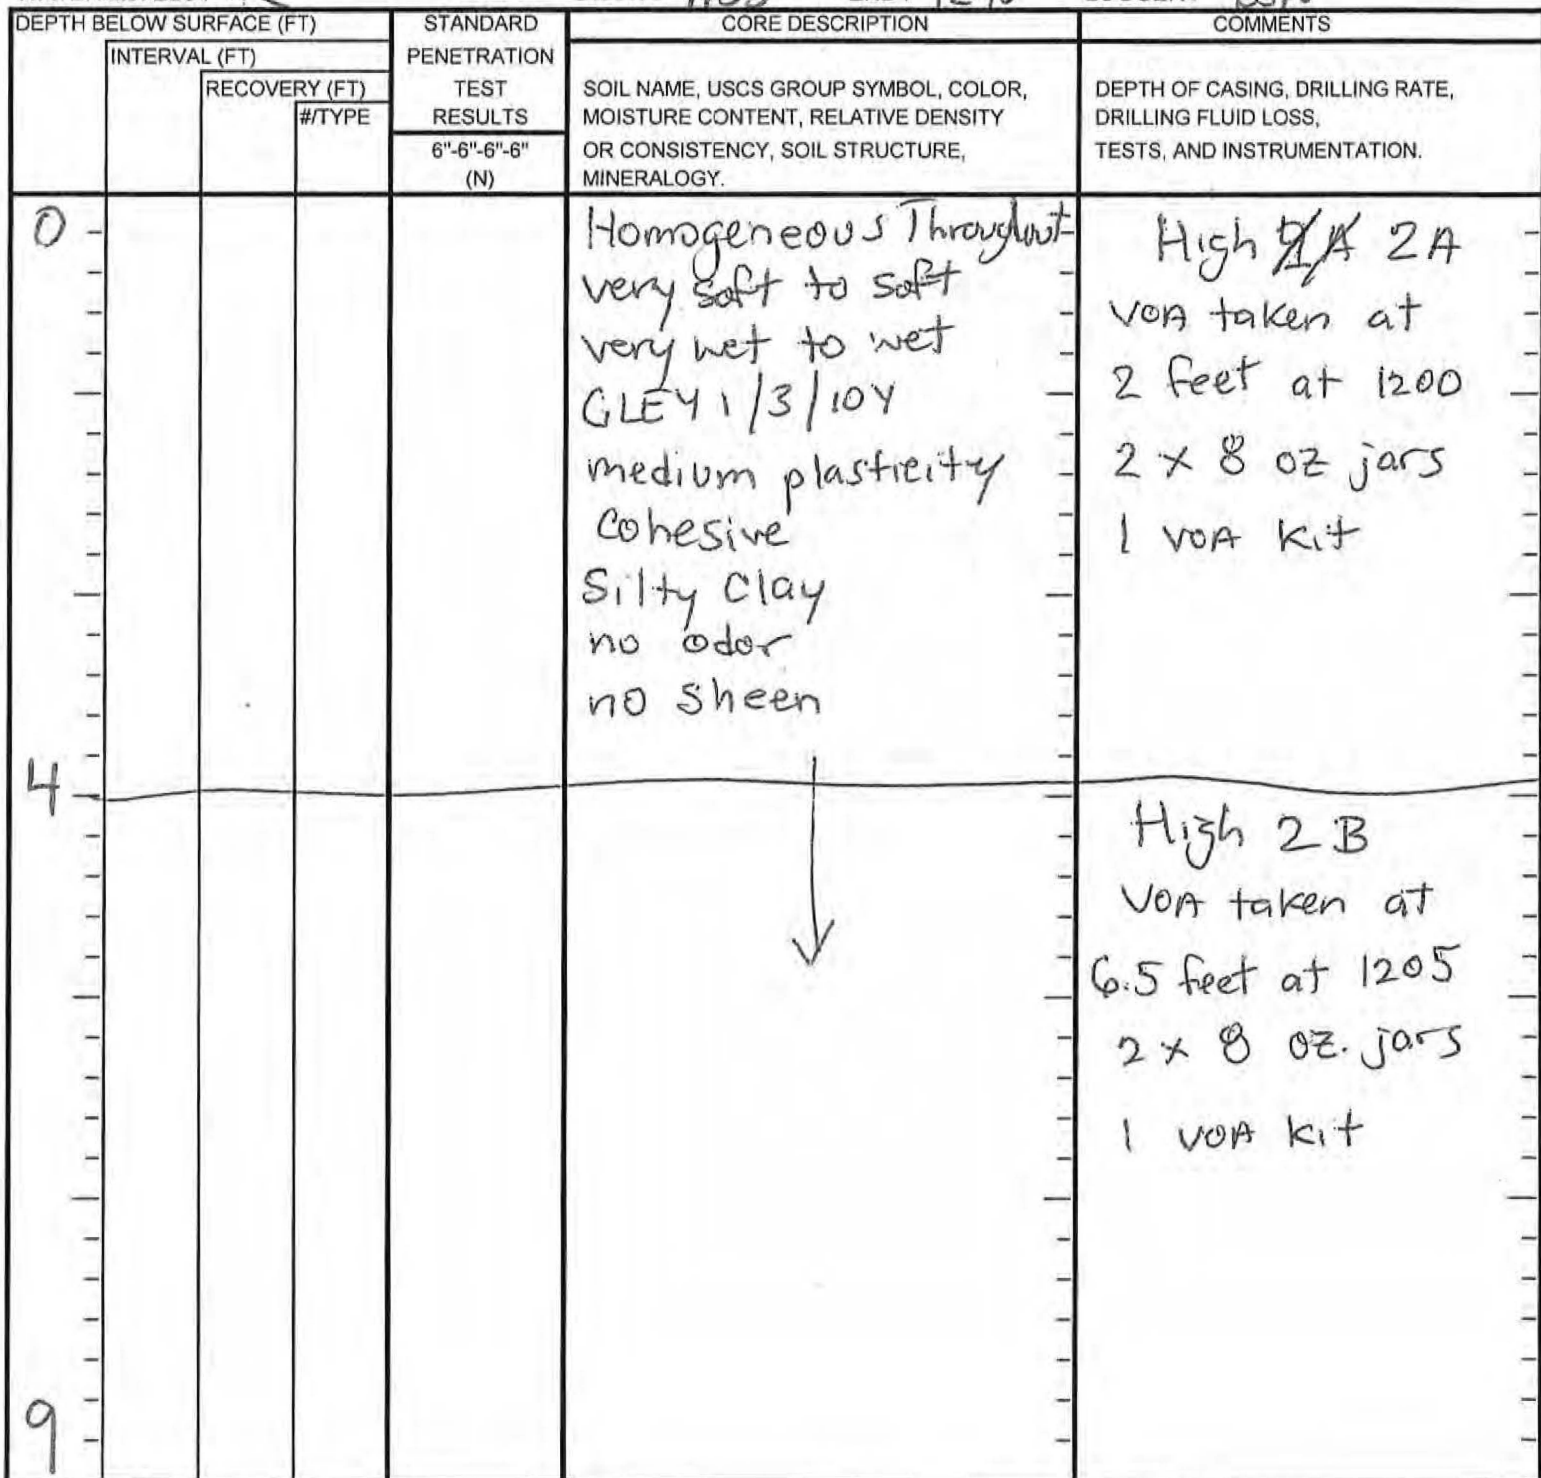 DEPTH BELOW SURFACE (FT)
INTERVAL (FT)
RECOVERY (FT)
#/TYPE
STANDARD
PENETRATION
TEST
RESULTS
6"-6"-6"-6"
(N)
CORE DESCRIPTION
SOIL NAME, USCS GROUP SYMBOL, COLOR,
MOISTURE CONTENT, RELATIVE DENSITY
OR CONSISTENCY, SOIL STRUCTURE,
MINERALOGY.
COMMENTS
DEPTH OF CASING, DRILLING RATE,
DRILLING FLUID LOSS,
TESTS, AND INSTRUMENTATION.
0
Homogeneous Throughout
very soft to soft
very wet to wet
GLEY 1/3/10Y
medium plasticity
Cohesive
Silty Clay
no odor
no sheen
High 2A
VOA taken at
2 feet at 1200
2 x 8 oz jars
1 VOA kit
4
High 2B
VOA taken at
6.5 feet at 1205
2 x 8 oz. jars
1 VOA kit
9